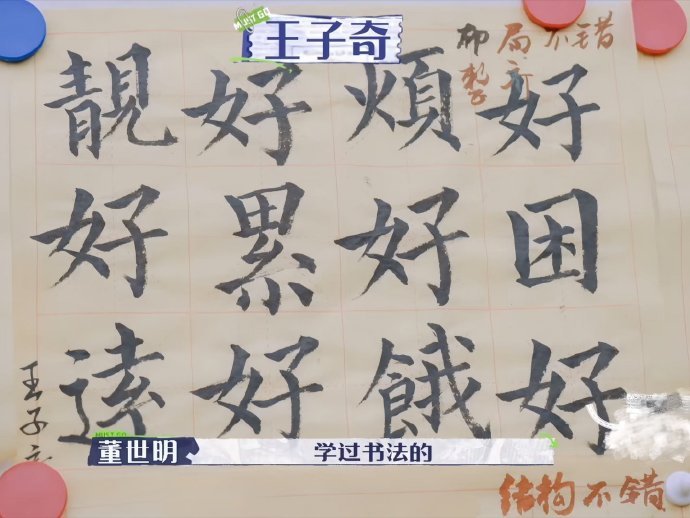 MUST GO
王子奇
局不错
好困好
煩好餓
好累好
靚好遠
王子奇
结构不错
MUST GO
董世明
学过书法的